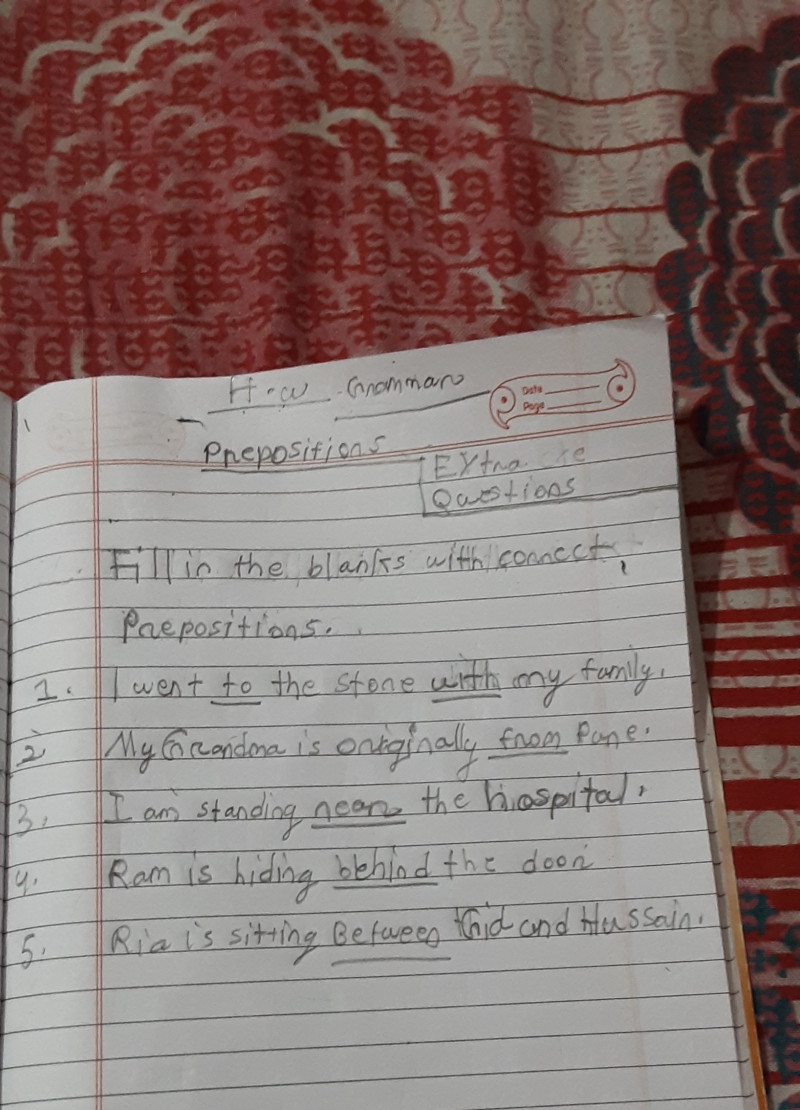 H.w Grammar
Date
Page
Prepositions
Extra
Questions
Fill in the blanks with correct
Prepositions.
1. I went to the store with my family.
2 My Grandma is originally from Pune.
3. I am standing near the hospital.
4. Ram is hiding behind the door
5. Ria is sitting Between and Hussain.